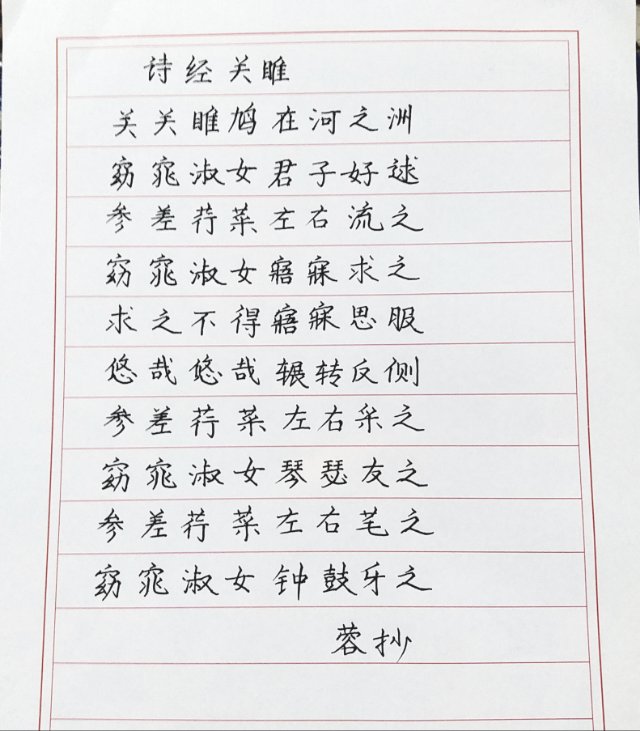 诗经关雎
关关雎鸠在河之洲
窈窕淑女君子好逑
参差荇菜左右流之
窈窕淑女寤寐求之
求之不得寤寐思服
悠哉悠哉辗转反侧
参差荇菜左右采之
窈窕淑女琴瑟友之
参差荇菜左右芼之
窈窕淑女钟鼓乐之
蓉抄